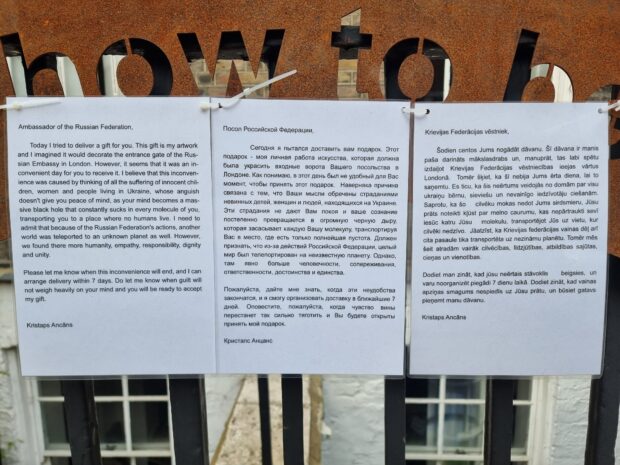 how to b
Ambassador of the Russian Federation,
Today I tried to deliver a gift for you. This gift is my artwork
and I imagined it would decorate the entrance gate of the Rus-
sian Embassy in London. However, it seems that it was an in-
convenient day for you to receive it. I believe that this inconven-
ience was caused by thinking of all the suffering of innocent chil-
dren, women and people living in Ukraine, whose anguish
doesn't give you peace of mind, as your mind becomes a mas-
sive black hole that constantly sucks in every molecule of you,
transporting you to a place where no humans live. I need to
admit that because of the Russian Federation's actions, another
world was teleported to an unknown planet as well. However,
we found there more humanity, empathy, responsibility, dignity
and unity.
Please let me know when this inconvenience will end, and I can
arrange delivery within 7 days. Do let me know when guilt will
not weigh heavily on your mind and you will be ready to accept
my gift.
Kristaps Ancāns
Посол Российской Федерации,
Сегодня я пытался доставить вам подарок. Этот
подарок - моя личная работа искусства, которая должна
была украсить входные ворота Вашего посольства в
Лондоне. Как понимаю, в этот день был не удобный для Вас
момент, чтобы принять этот подарок. Наверника причина
связана с тем, что Ваши мысли обречены страданиями
невинных детей, женщин и людей, находящихся на Украине.
Эти страдания не дают Вам покоя и ваше сознание
постепенно превращается в огромную черную дыру,
которая засасывает каждую Вашу молекулу, транспортируя
Вас к месте, где есть только полнейшая пустота. Должен
признать, что из-за действий Российской Федерации, целый
мир был телепортирован на неизвестную планету. Однако,
там явно больше человечности, сопереживания,
ответственности, достоинства и единства.
Пожалуйста, дайте мне знать, когда эти неудобства
закончатся, и я смогу организовать доставку в ближайшие 7
дней. Оповестите, пожалуйста, когда чувство вины
перестанет так сильно тяготить и Вы будете открыты
принять мой подарок.
Кристапс Анцанс
Krievijas Federācijas vēstniek,
Šodien centos Jums nogādāt dāvanu. Šī dāvana ir manis
paša darināts mākslasdrabs un, manuprāt, tas labi spētu
izdaiļot Krievijas Federācijas vēstniecības ieejas vārtus
Londonā. Tomēr šķiet, ka šī nebija Jums ērta diena, lai to
saņemtu. Es ticu, ka šis neērtums veidojās no domām par visu
ukraiņu bērnu, sieviešu un nevainīgo iedzīvotāju ciešanām.
Saprotu, ka šo cilvēku mokas nedod Jums sirdsmieru, Jūsu
prāts noteikti kļūst par melno caurumu, kas nepārtraukti sevī
iesūc katru Jūsu molekulu, transportējot Jūs uz vietu, kur
cilvēki nedzīvo. Jāatzīst, ka Krievijas federācijas vainas dēļ arī
cita pasaule tika transportēta uz nezināmu planētu. Tomēr mēs
šeit atradām vairāk cilvēcības, līdzjūtības, atbildības sajūtas,
cieņas un vienotības.
Dodiet man zināt, kad jūsu neērtais stāvoklis beigsies, un
varu noorganizēt piegādi 7 dienu laikā. Dodiet zināt, kad vainas
apziņas smagums nespiedīs uz Jūsu prātu, un būsiet gatavs
pieņemt manu dāvanu.
Kristaps Ancāns